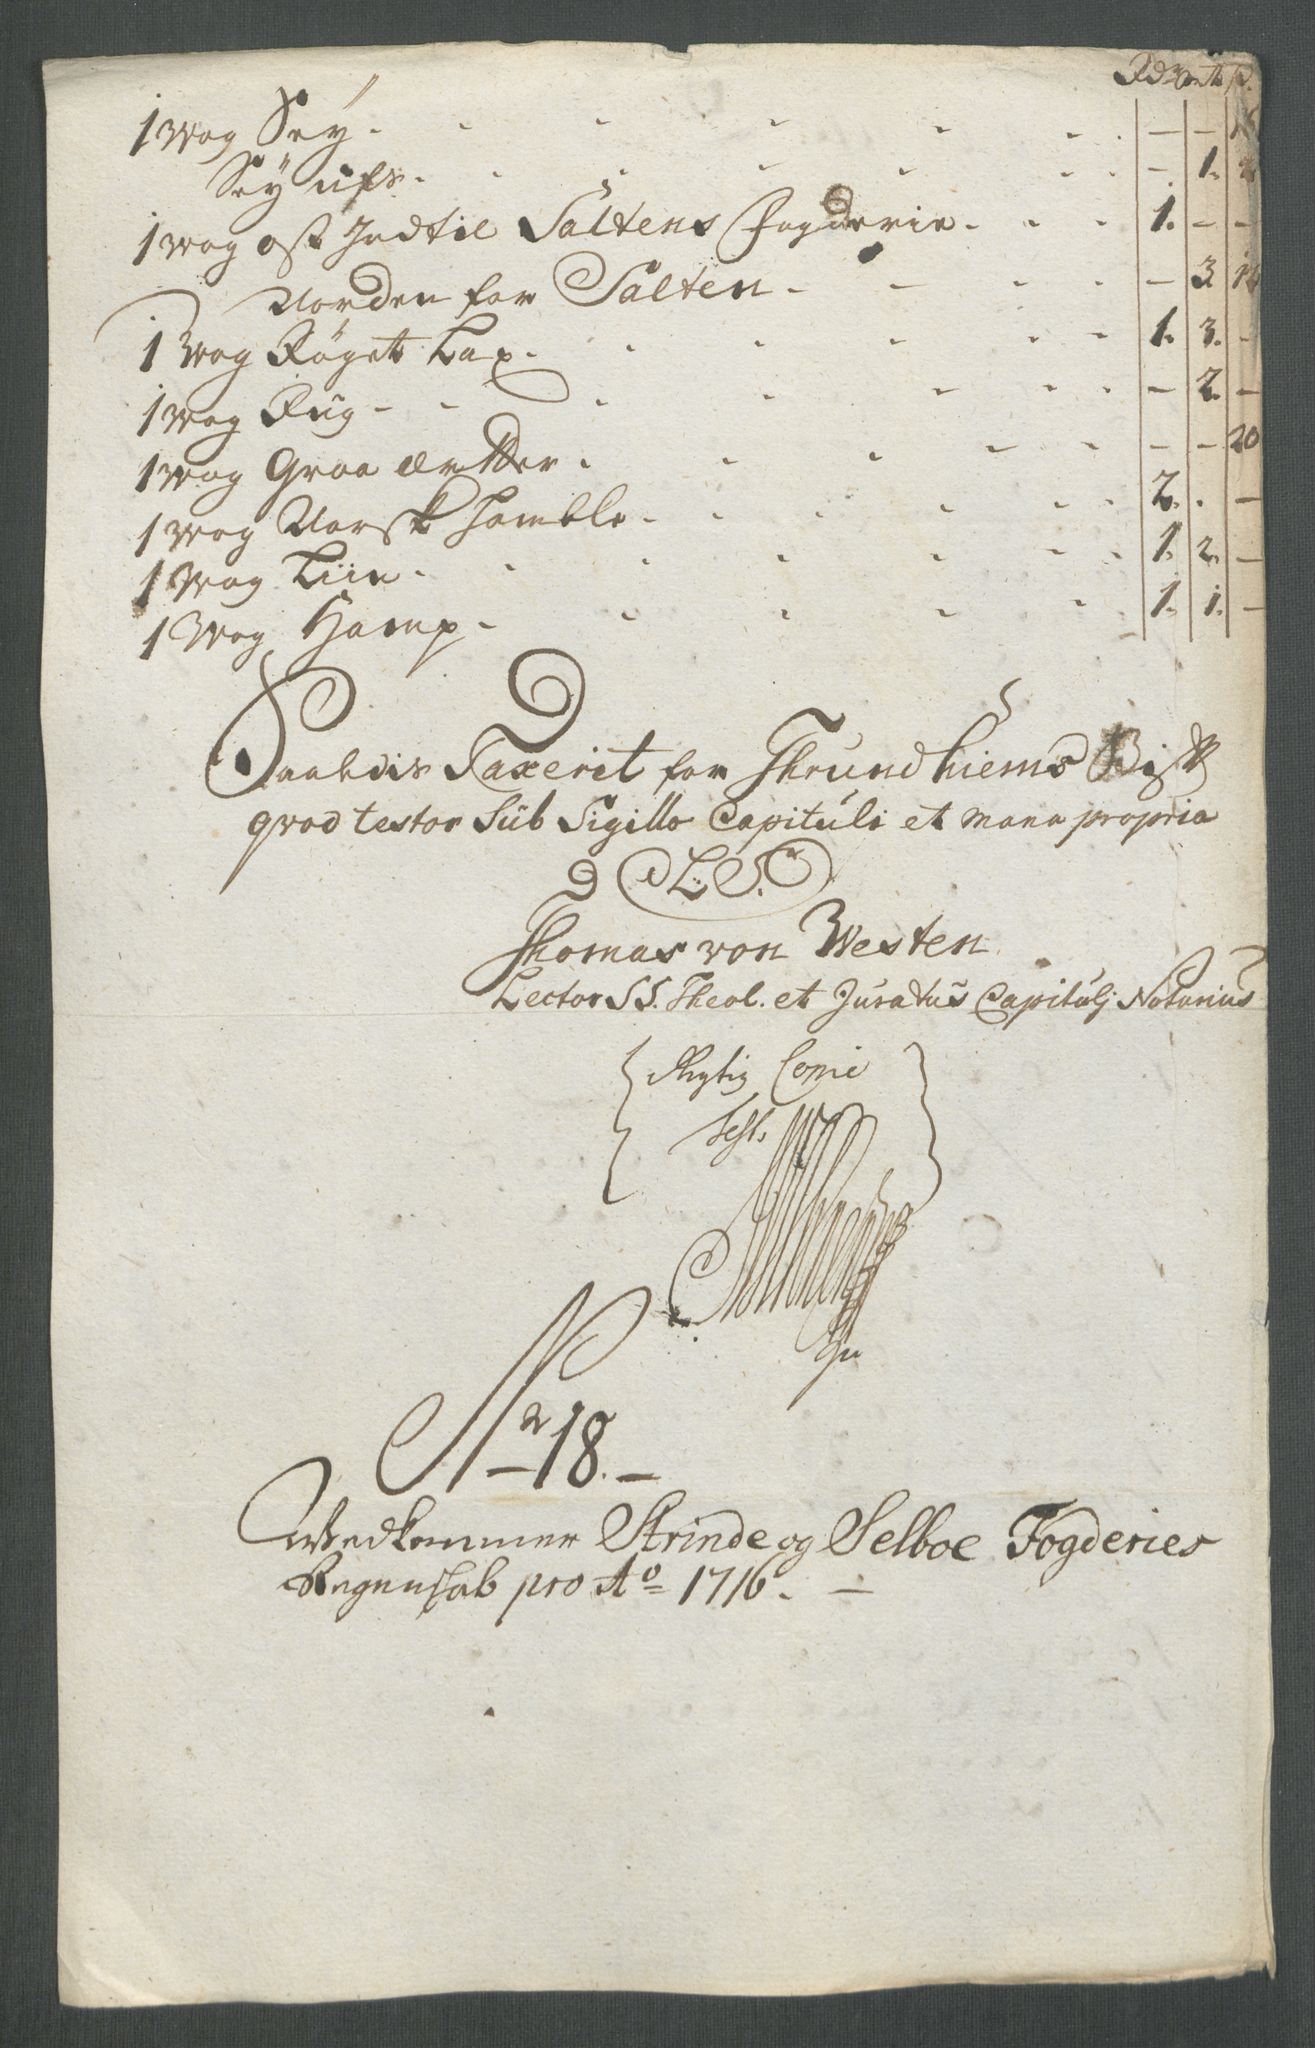 Rdr ort s.
1 Wog Sey - - 16
Sey ufs - 1. 2
1 wog ost Indtil Saltens Fogderie 1. - -
Norden for Salten - 3 14
1 Wog Röget Lax 1. 3. -
1 Wog Rug - 2. -
1 Wog Graa ærtter - - 20
1 Wog Norsk Homble 2. . -
1 Wog Liin 1. 2. -
1 Wog Hamp 1. 1. -
Saaledis Taxerit for Thrundhiems Bist
qvod testor Sub Sigillo Capituli et manu propria
L. S.
Thomas von Westen
Lector SS. Theol. et Juratus Capitulj Notarius
Rigtig Copie
Test.
No 18.
Wedkommer Strinde og Selboe Fogderies
Regenskab pro Ao 1716.